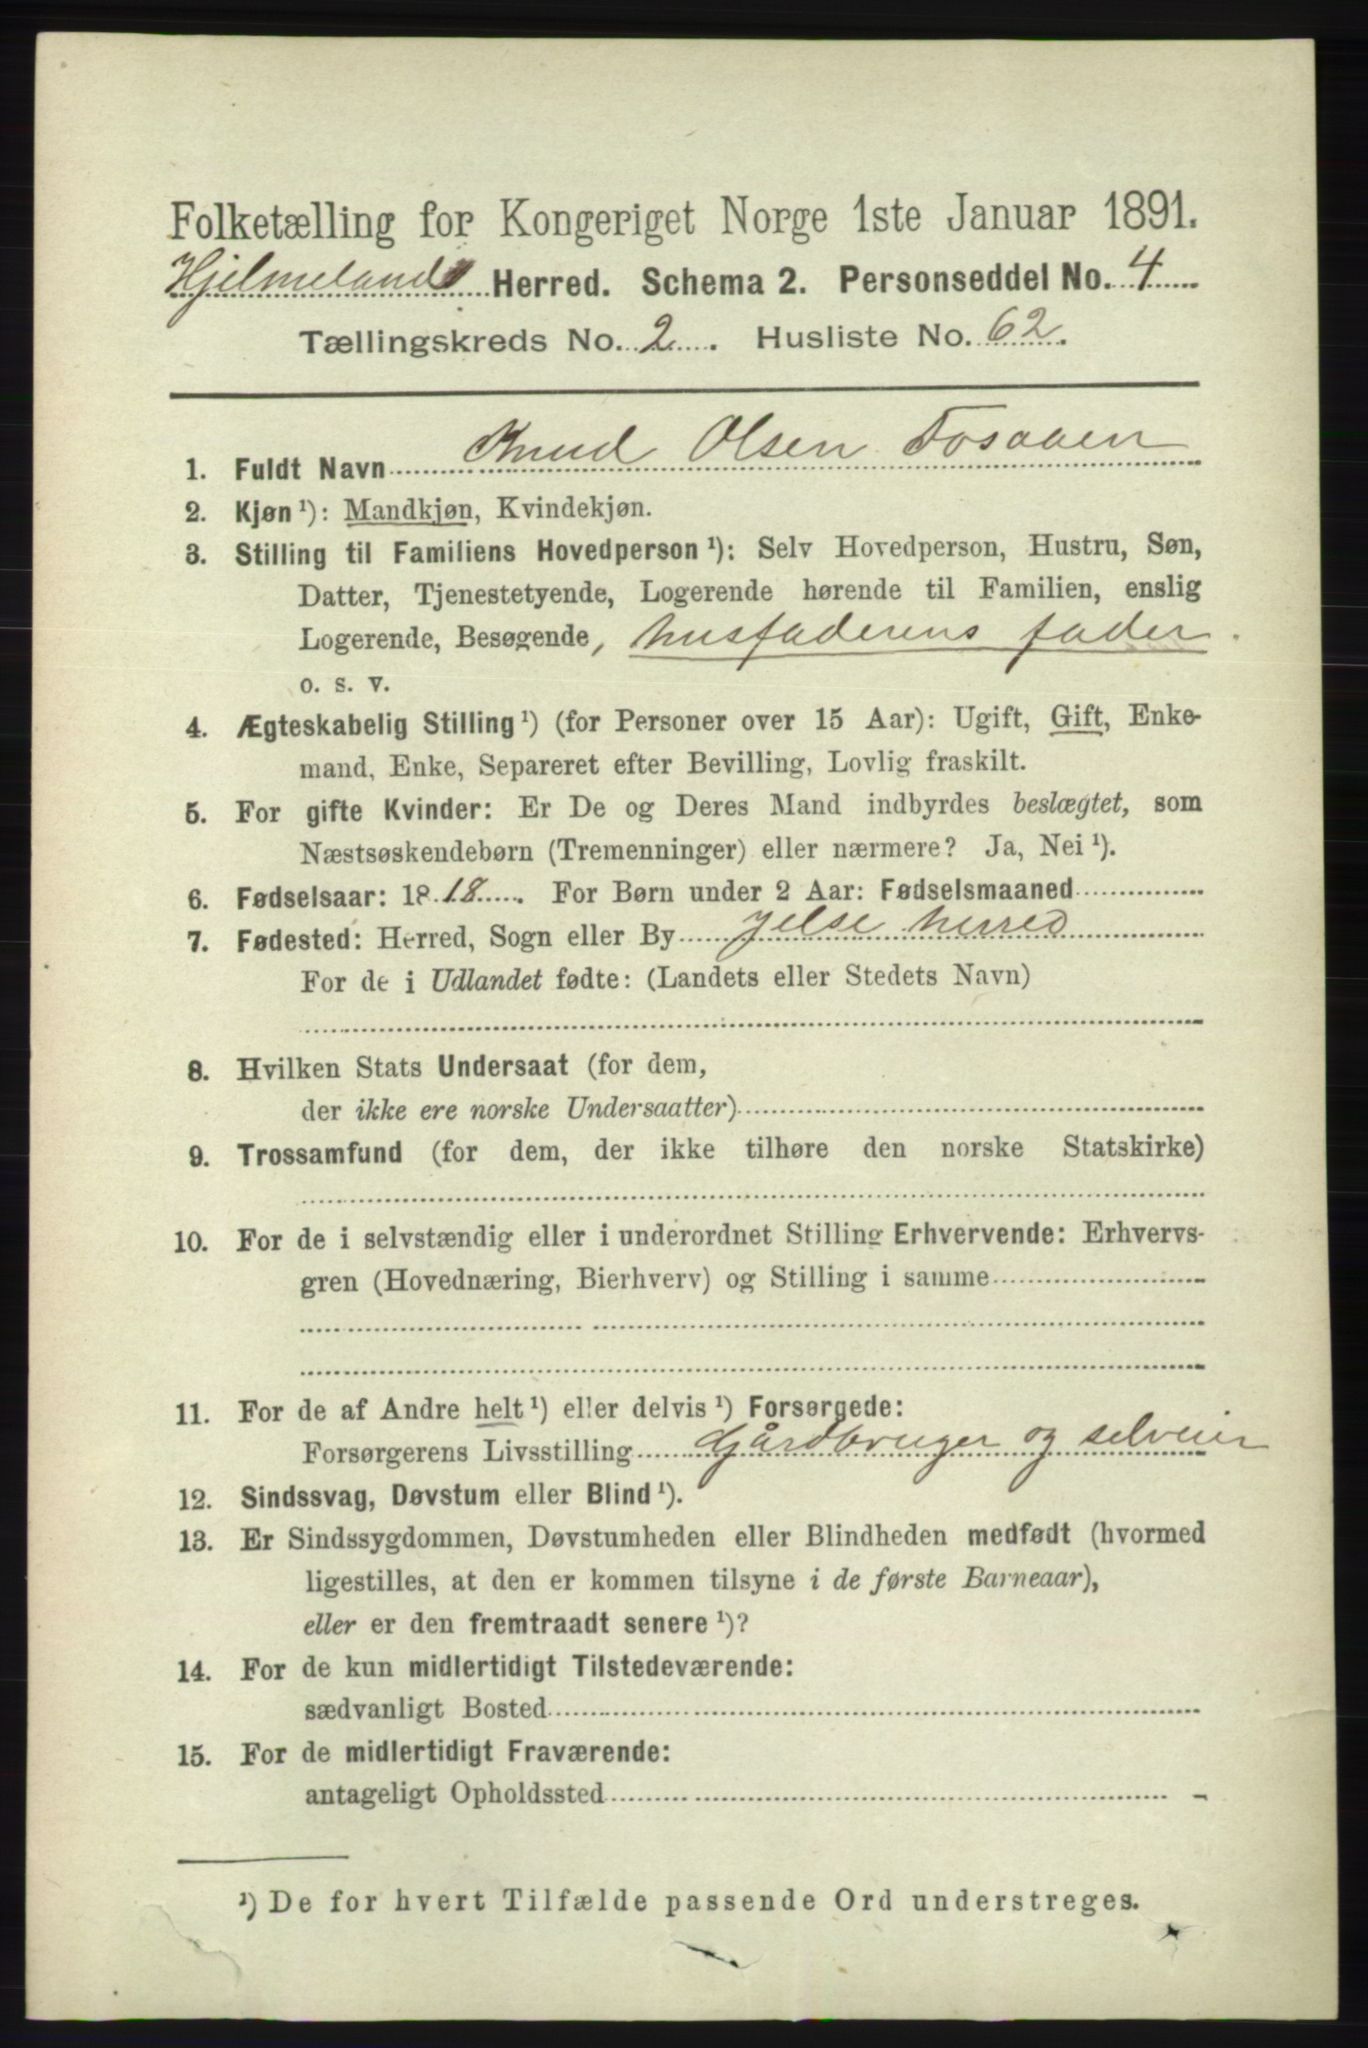 Folketælling for Kongeriget Norge 1ste Januar 1891.
Hjelmeland Herred. Schema 2. Personseddel No. 4
Tællingskreds No. 2. Husliste No. 62.
1. Fuldt Navn Knud Olsen Fosaaen
2. Kjøn¹): Mandkjøn, Kvindekjøn.
3. Stilling til Familiens Hovedperson¹): Selv Hovedperson, Hustru, Søn,
Datter, Tjenestetyende, Logerende hørende til Familien, enslig
Logerende, Besøgende, husfaderens fader.
o. s. v.
4. Ægteskabelig Stilling¹) (for Personer over 15 Aar): Ugift, Gift, Enke-
mand, Enke, Separeret efter Bevilling, Lovlig fraskilt.
5. For gifte Kvinder: Er De og Deres Mand indbyrdes beslægtet, som
Næstsøskendebørn (Tremenninger) eller nærmere? Ja, Nei¹).
6. Fødselsaar: 1818. For Børn under 2 Aar: Fødselsmaaned
7. Fødested: Herred, Sogn eller By Jelse herred
For de i Udlandet fødte: (Landets eller Stedets Navn)
8. Hvilken Stats Undersaat (for dem,
der ikke ere norske Undersaatter)
9. Trossamfund (for dem, der ikke tilhøre den norske Statskirke)
10. For de i selvstændig eller i underordnet Stilling Erhvervende: Erhvervs-
gren (Hovednæring, Bierhverv) og Stilling i samme
11. For de af Andre helt¹) eller delvis¹) Forsørgede:
Forsørgerens Livsstilling Gårdbruger og selveier
12. Sindssvag, Døvstum eller Blind¹).
13. Er Sindssygdommen, Døvstumheden eller Blindheden medfødt (hvormed
ligestilles, at den er kommen tilsyne i de første Barneaar),
eller er den fremtraadt senere¹)?
14. For de kun midlertidigt Tilstedeværende:
sædvanligt Bosted
15. For de midlertidigt Fraværende:
antageligt Opholdssted
¹) De for hvert Tilfælde passende Ord understreges.